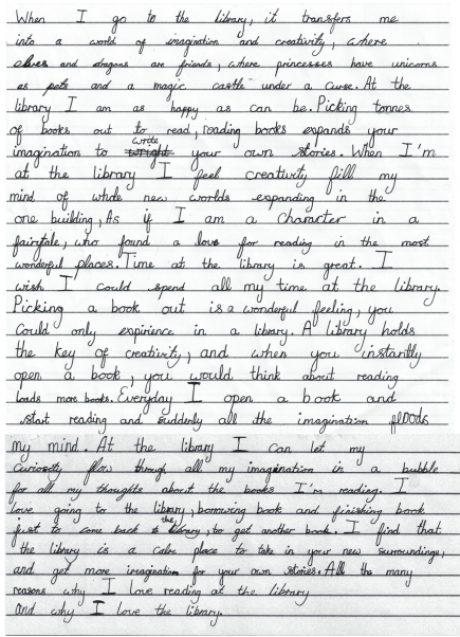 When I go to the library, it transfers me
into a world of imagination and creativity, where
elves and dragons are friends, where princesses have unicorns
as pets and a magic castle under a curse. At the
library I am as happy as can be. Picking tonnes
of books out to read, reading books expands your
imagination to write your own stories. When I'm
at the library I feel creativity fill my
mind of whole new worlds expanding in the
one building, As if I am a character in a
fairytale, who found a love for reading in the most
wonderful places. Time at the library is great. I
wish I could spend all my time at the library.
Picking a book out is a wonderful feeling, you
could only expirience in a library. A library holds
the key of creativity, and when you instantly
open a book, you would think about reading
loads more books. Everyday I open a book and
start reading and suddenly all the imagination floods
my mind. At the library I can let my
curiosity flow through all my imagination in a bubble
for all my thoughts about the books I'm reading. I
love going to the library, borrowing book and finishing book
just to come back to the library, to get another book. I find that
the library is a calm place to take in your new surroundings,
and get more imagination for your own stories. All the many
reasons why I love reading at the library
and why I love the library.